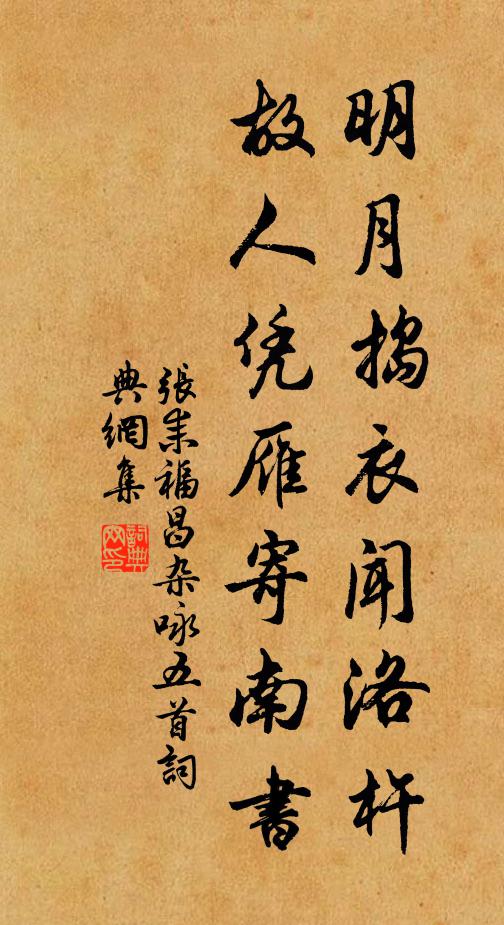 明月搗衣闻洛杵
故人凭雁寄南書
張耒福昌杂咏五首詞
典網集
詞典网印